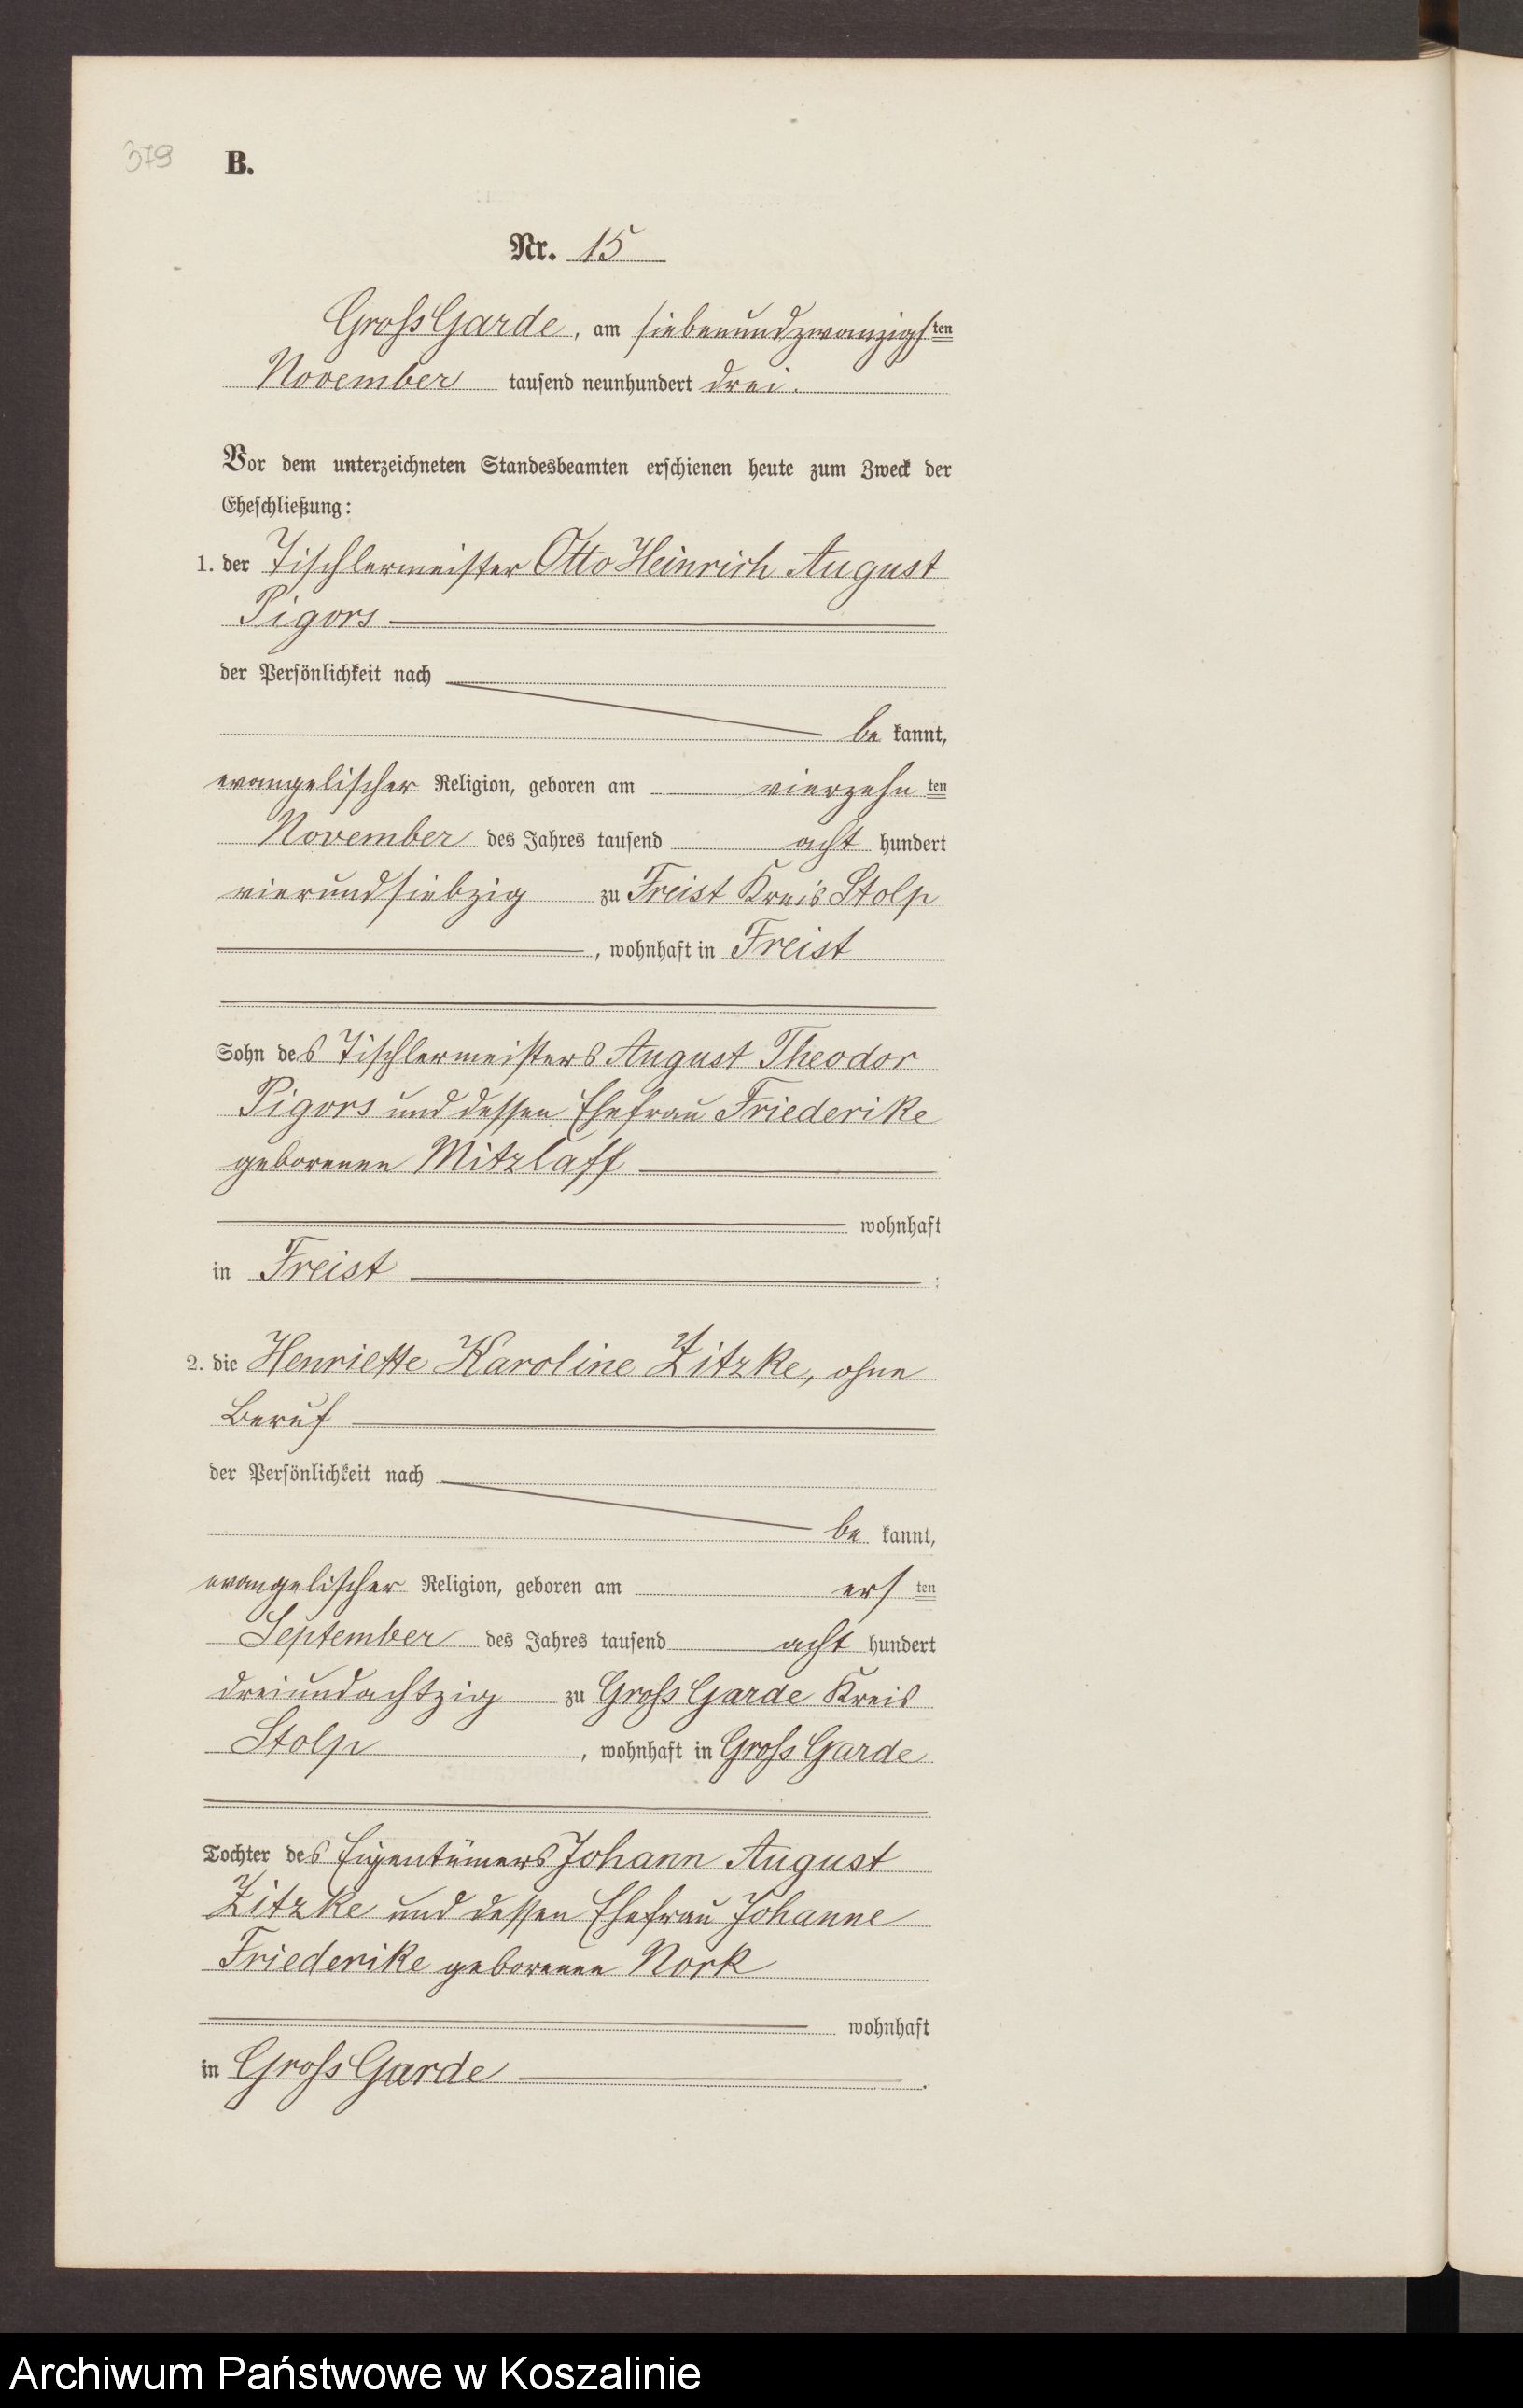 379 B.
Nr. 15
Gross Garde, am siebenundzwanzigsten
November tausend neunhundert drei.
Vor dem unterzeichneten Standesbeamten erschienen heute zum Zweck der
Eheschließung:
1. der Tischlermeister Otto Heinrich August
Pigors
der Persönlichkeit nach
be kannt,
evangelischer Religion, geboren am vierzehn ten
November des Jahres tausend acht hundert
vierundsiebzig zu Freist Kreis Stolp
, wohnhaft in Freist
Sohn des Tischlermeisters August Theodor
Pigors und dessen Ehefrau Friederike
geborenen Mitzlaff
wohnhaft
in Freist :
2. die Henriette Karoline Zitzke, ohne
Beruf
der Persönlichkeit nach
be kannt,
evangelischer Religion, geboren am ers ten
September des Jahres tausend acht hundert
dreiundachtzig zu Gross Garde Kreis
Stolp , wohnhaft in Gross Garde
Tochter des Eigentümers Johann August
Zitzke und dessen Ehefrau Johanne
Friederike geborenen Nork
wohnhaft
in Gross Garde .
Archiwum Państwowe w Koszalinie